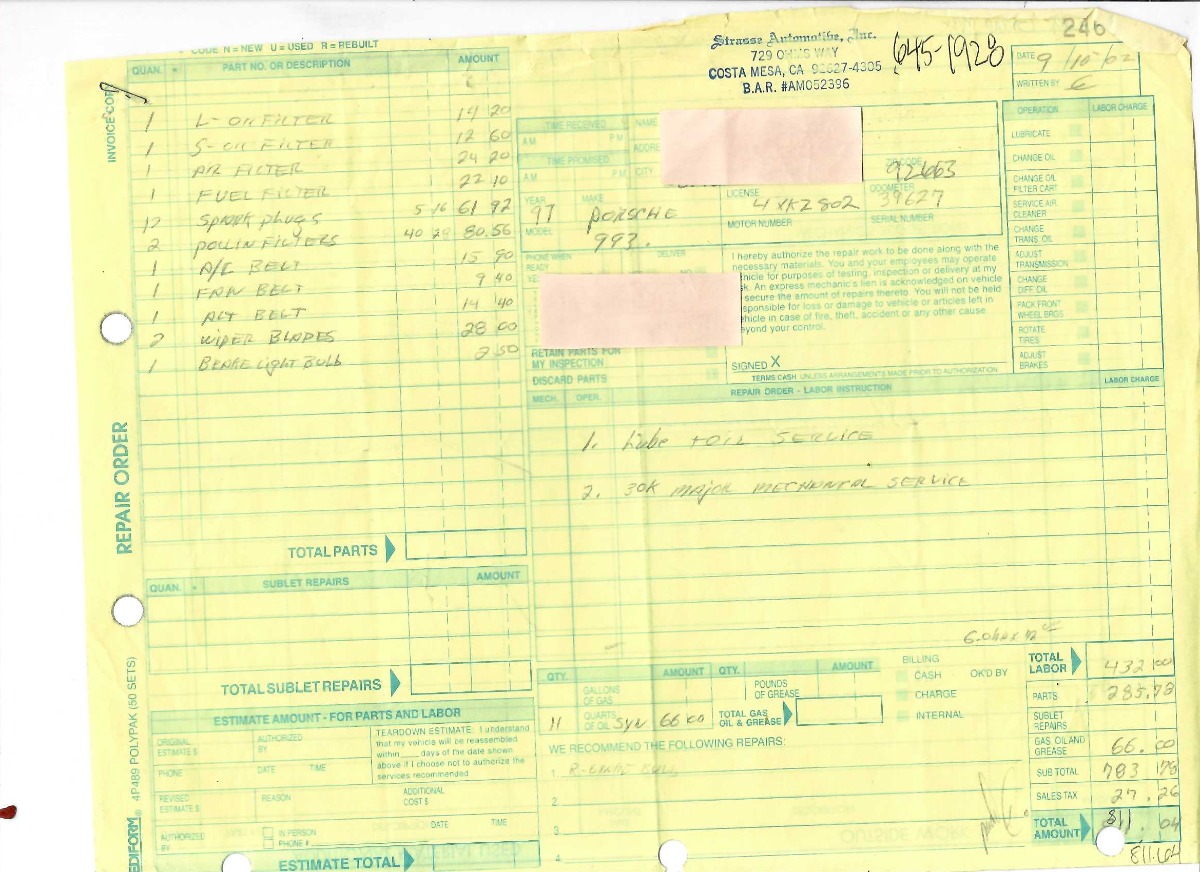 246
CODE N = NEW U = USED R = REBUILT
QUAN. * PART NO. OR DESCRIPTION AMOUNT
1 L-OIL FILTER 14 20
1 S-OIL FILTER 12 60
1 AIR FILTER 24 20
1 FUEL FILTER 22 10
12 SPARK PLUGS 5 16 61 92
2 POLLIN FILTERS 40 28 80.56
1 A/C BELT 15 90
1 FAN BELT 9 40
1 ALT BELT 14 40
2 WIPER BLADES 28 00
1 BRAKE LIGHT BULB 2 50
INVOICE COPY
REPAIR ORDER
TOTAL PARTS
QUAN. * SUBLET REPAIRS AMOUNT
TOTAL SUBLET REPAIRS
ESTIMATE AMOUNT - FOR PARTS AND LABOR
ORIGINAL ESTIMATE $
AUTHORIZED BY
PHONE DATE TIME
TEARDOWN ESTIMATE: I understand
that my vehicle will be reassembled
within ____ days of the date shown
above if I choose not to authorize the
services recommended
REVISED ESTIMATE $
REASON
ADDITIONAL COST $
AUTHORIZED BY
IN PERSON
PHONE #
DATE TIME
ESTIMATE TOTAL
EDIFORM® 4P489 POLYPAK (50 SETS)
Strasse Automotive, Inc.
729 OHMS WAY
COSTA MESA, CA 92627-4305
B.A.R. #AM052396
645-1928
DATE 9/10-02
WRITTEN BY
TIME RECEIVED
A.M. P.M.
TIME PROMISED
A.M. P.M.
NAME
ADDRE
CITY
ZIP CODE 92663
YEAR 97
MAKE PORSCHE
LICENSE 4XKZ802
ODOMETER 39627
MODEL 993.
MOTOR NUMBER
SERIAL NUMBER
PHONE WHEN READY
YES
DELIVER
NO
I hereby authorize the repair work to be done along with the
necessary materials. You and your employees may operate
vehicle for purposes of testing, inspection or delivery at my
sk. An express mechanic's lien is acknowledged on vehicle
secure the amount of repairs thereto. You will not be held
responsible for loss or damage to vehicle or articles left in
vehicle in case of fire, theft, accident or any other cause
beyond your control.
RETAIN PARTS FOR MY INSPECTION
DISCARD PARTS
SIGNED X
TERMS CASH UNLESS ARRANGEMENTS MADE PRIOR TO AUTHORIZATION
OPERATION LABOR CHARGE
LUBRICATE
CHANGE OIL
CHANGE OIL FILTER CART
SERVICE AIR CLEANER
CHANGE TRANS. OIL
ADJUST TRANSMISSION
CHANGE DIFF. OIL
PACK FRONT WHEEL BRGS
ROTATE TIRES
ADJUST BRAKES
MECH. OPER. REPAIR ORDER - LABOR INSTRUCTION LABOR CHARGE
1. Lube + OIL SERVICE
2. 30K MAJOR MECHANICAL SERVICE
QTY. AMOUNT QTY. AMOUNT
GALLONS OF GAS
POUNDS OF GREASE
11 QUARTS OF OIL SYN 66 00
TOTAL GAS OIL & GREASE
BILLING
CASH OK'D BY
CHARGE
INTERNAL
WE RECOMMEND THE FOLLOWING REPAIRS:
1
2
3
4
TOTAL LABOR 432 00
PARTS 285.78
SUBLET REPAIRS
GAS OIL AND GREASE 66.00
SUB TOTAL 783 78
SALES TAX 27.26
TOTAL AMOUNT 811.04
811.04